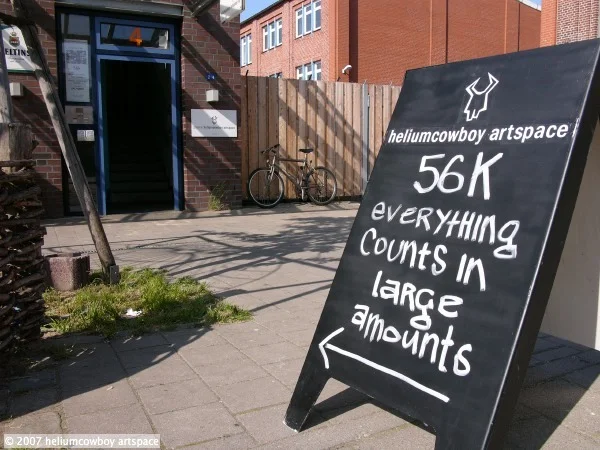 4
ELTINS
heliumcowboy artspace
56K
everything
Counts in
large
amounts
© 2007 heliumcowboy artspace